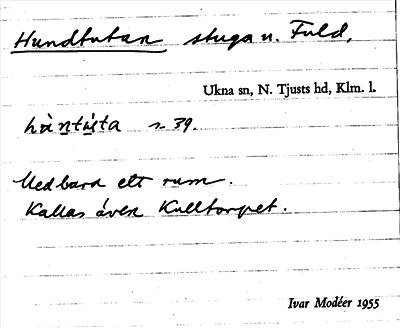 Hundtutan stuga u. Fuld,
Ukna sn, N. Tjusts hd, Klm. l.
s. 39.
Med bara ett rum.
Kallas även Kulltorpet.
Ivar Modéer 1955